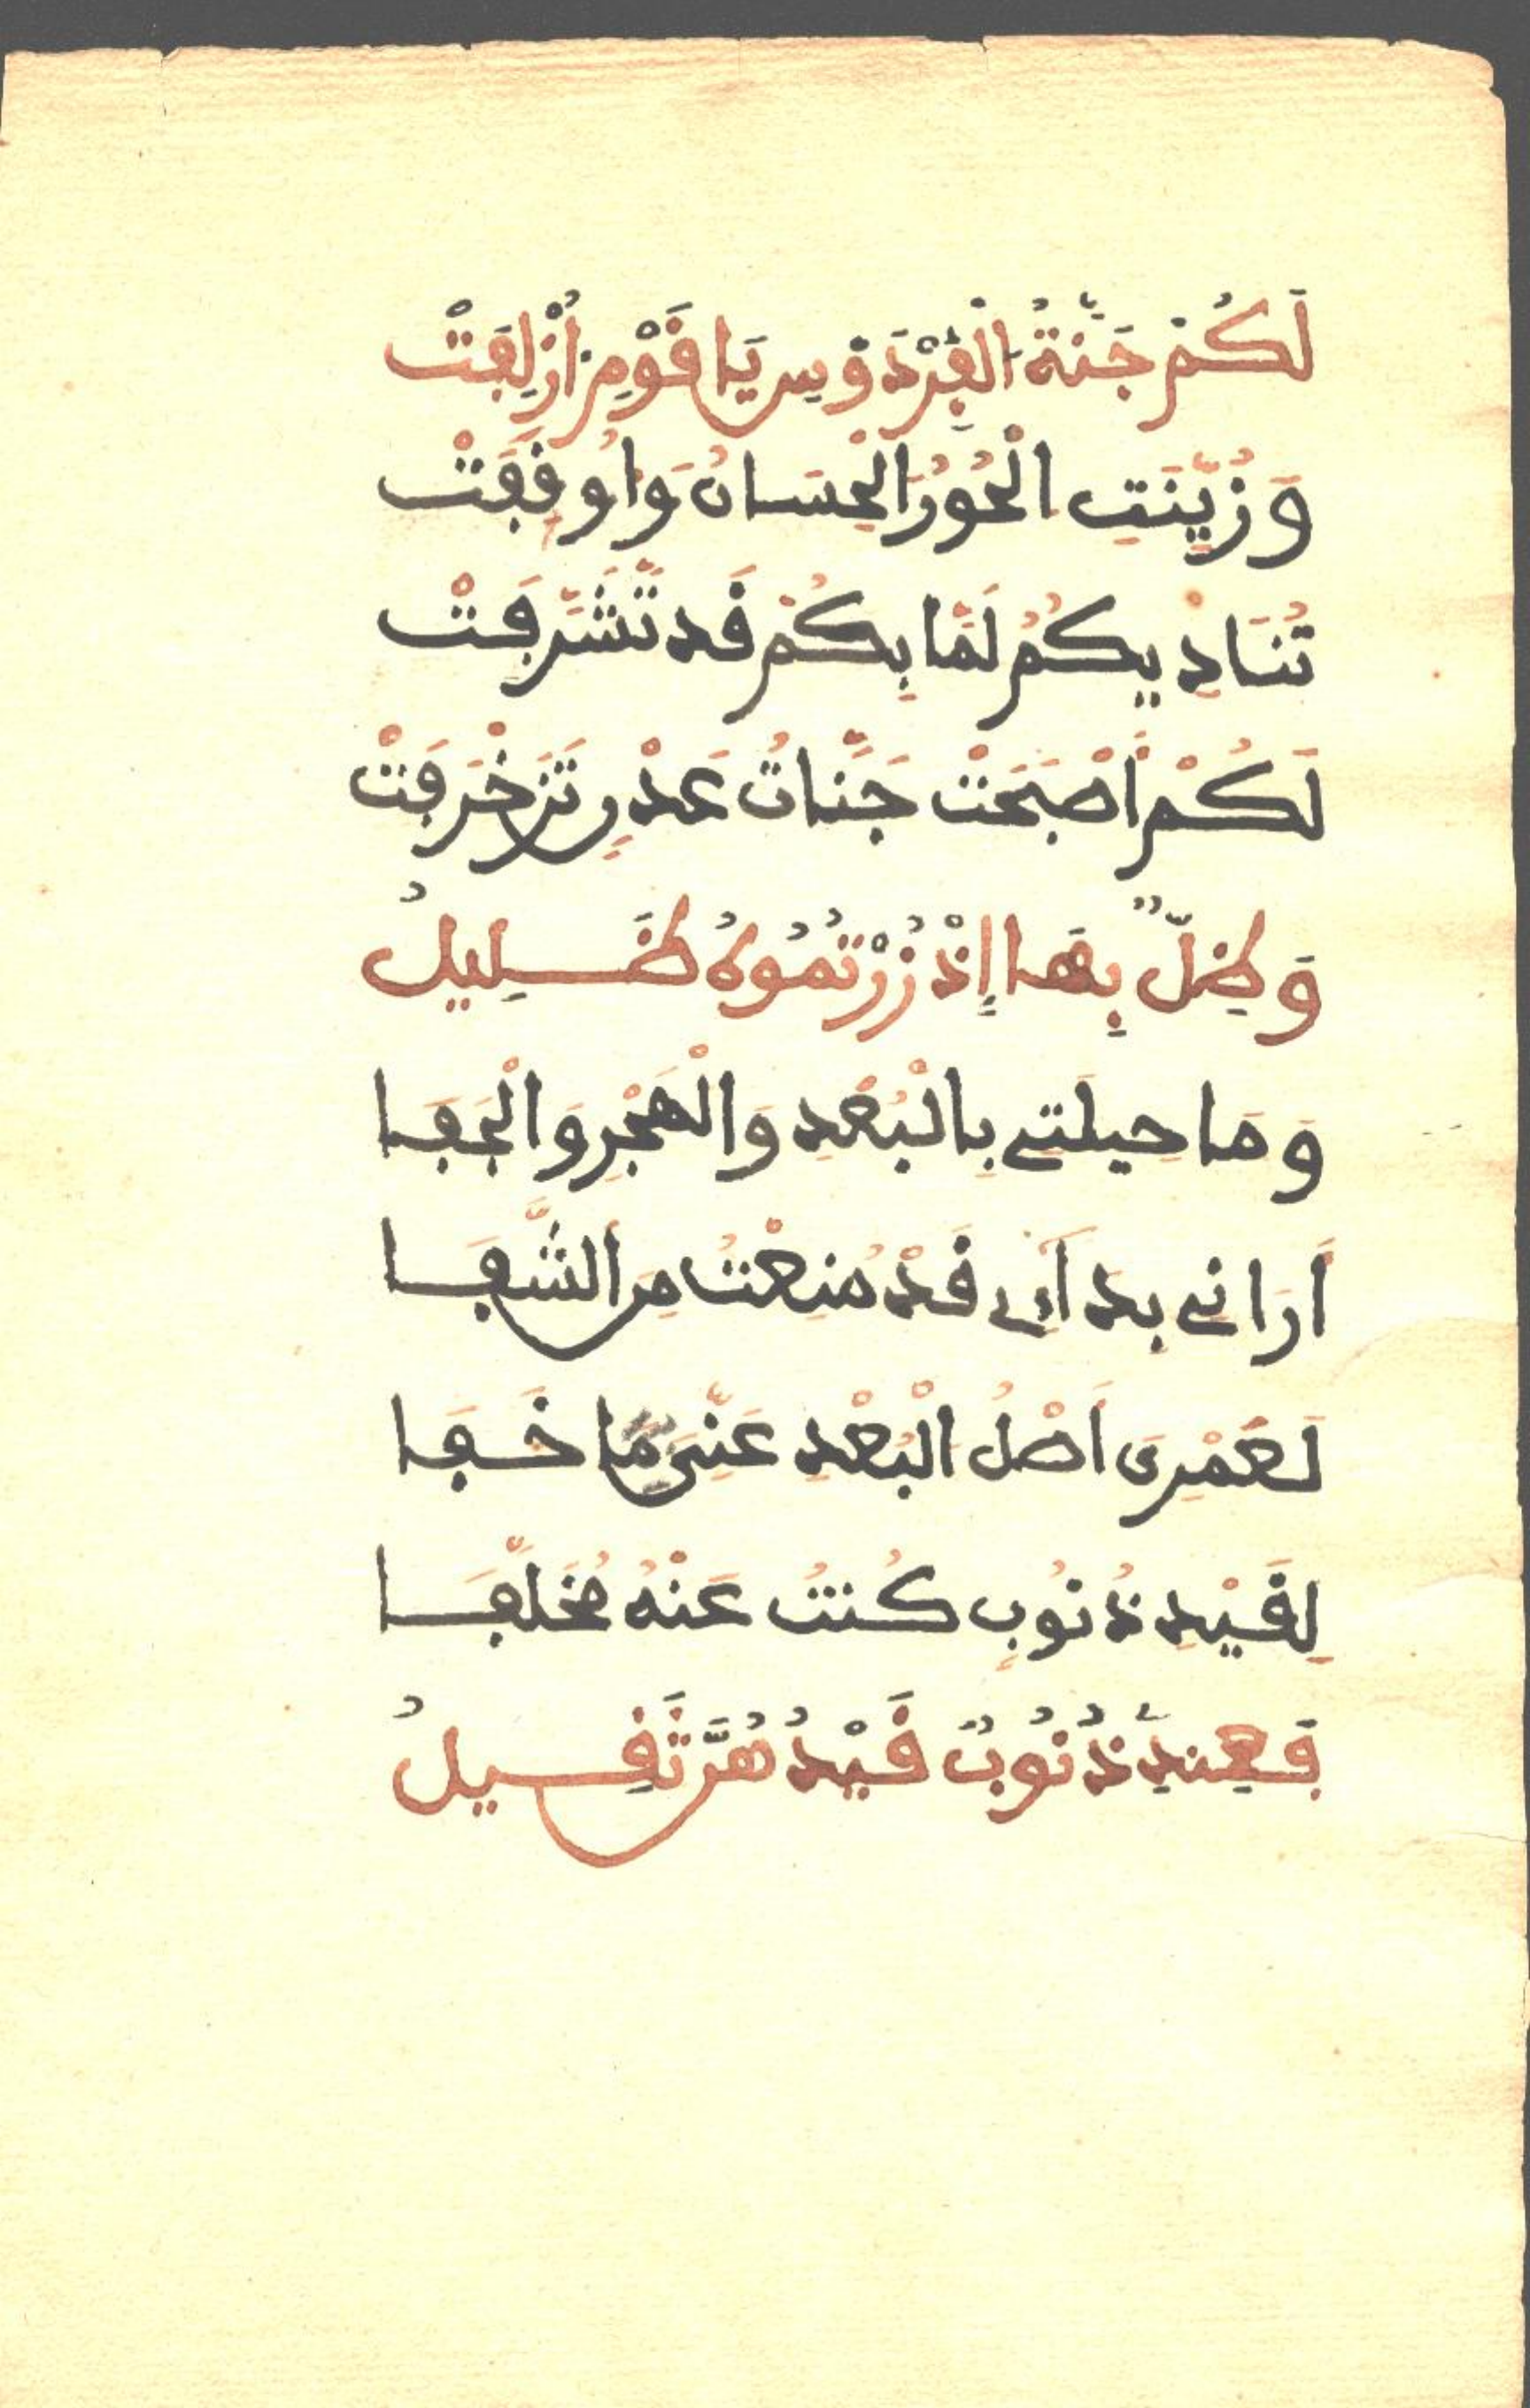 لَكُمْ جَنَّةُ الْفِرْدَوْسِ يَا قَوْمِ أُزْلِفَتْ
وَزُيِّنَتِ الْحُورُ الْحِسَانُ وَاُوقِفَتْ
تُنَادِيكُمُ لَمَّا بِكُمْ قَد تَّشَرَّفَتْ
لَكُمْ أَصْبَحَتْ جَنَّاتُ عَدْنٍ تَزَخْرَفَتْ
وَظِلٌّ بِهَا إِذْ زُرْتُمُوهُ ظَلِيلُ
وَمَا حِيلَتِي بِالْبُعْدِ وَالْهَجْرِ وَالْجَفَا
أَرَانِي بِدَائِي قَدْ مُنِعْتُ مِنَ الشِّفَا
لَعَمْرِى أَصْلُ الْبُعْدِ عَنِّىَ مَا خَفَا
لِقَيْدِ ذُنُوبٍ كُنتُ عَنْهُ مُخَلَّفَا
فَعِندِي ذُنُوبٌ قَيْدُهُنَّ ثَقِيلُ